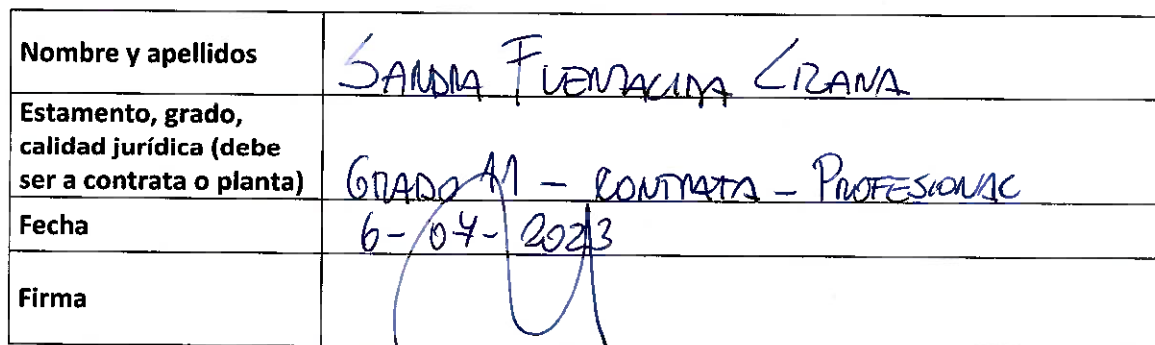 Nombre y apellidos
SANDRA FUENZALIDA LIZANA
Estamento, grado,
calidad jurídica (debe
ser a contrata o planta)
GRADO 11 - CONTRATA - PROFESIONAL
Fecha
6-07-2023
Firma